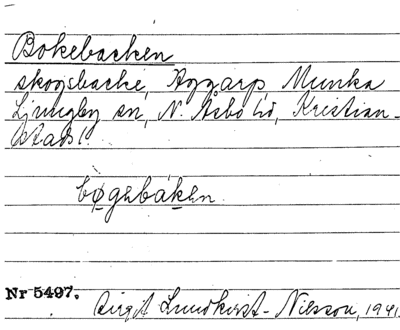 Bokebacken
skogsbacke, Aggarp, Munka
Ljungby sn, N. Åsbo hd, Kristian-
stads l.
bøgebáken.
Nr 5497.
Birgit Lundkvist-Nilsson, 1941